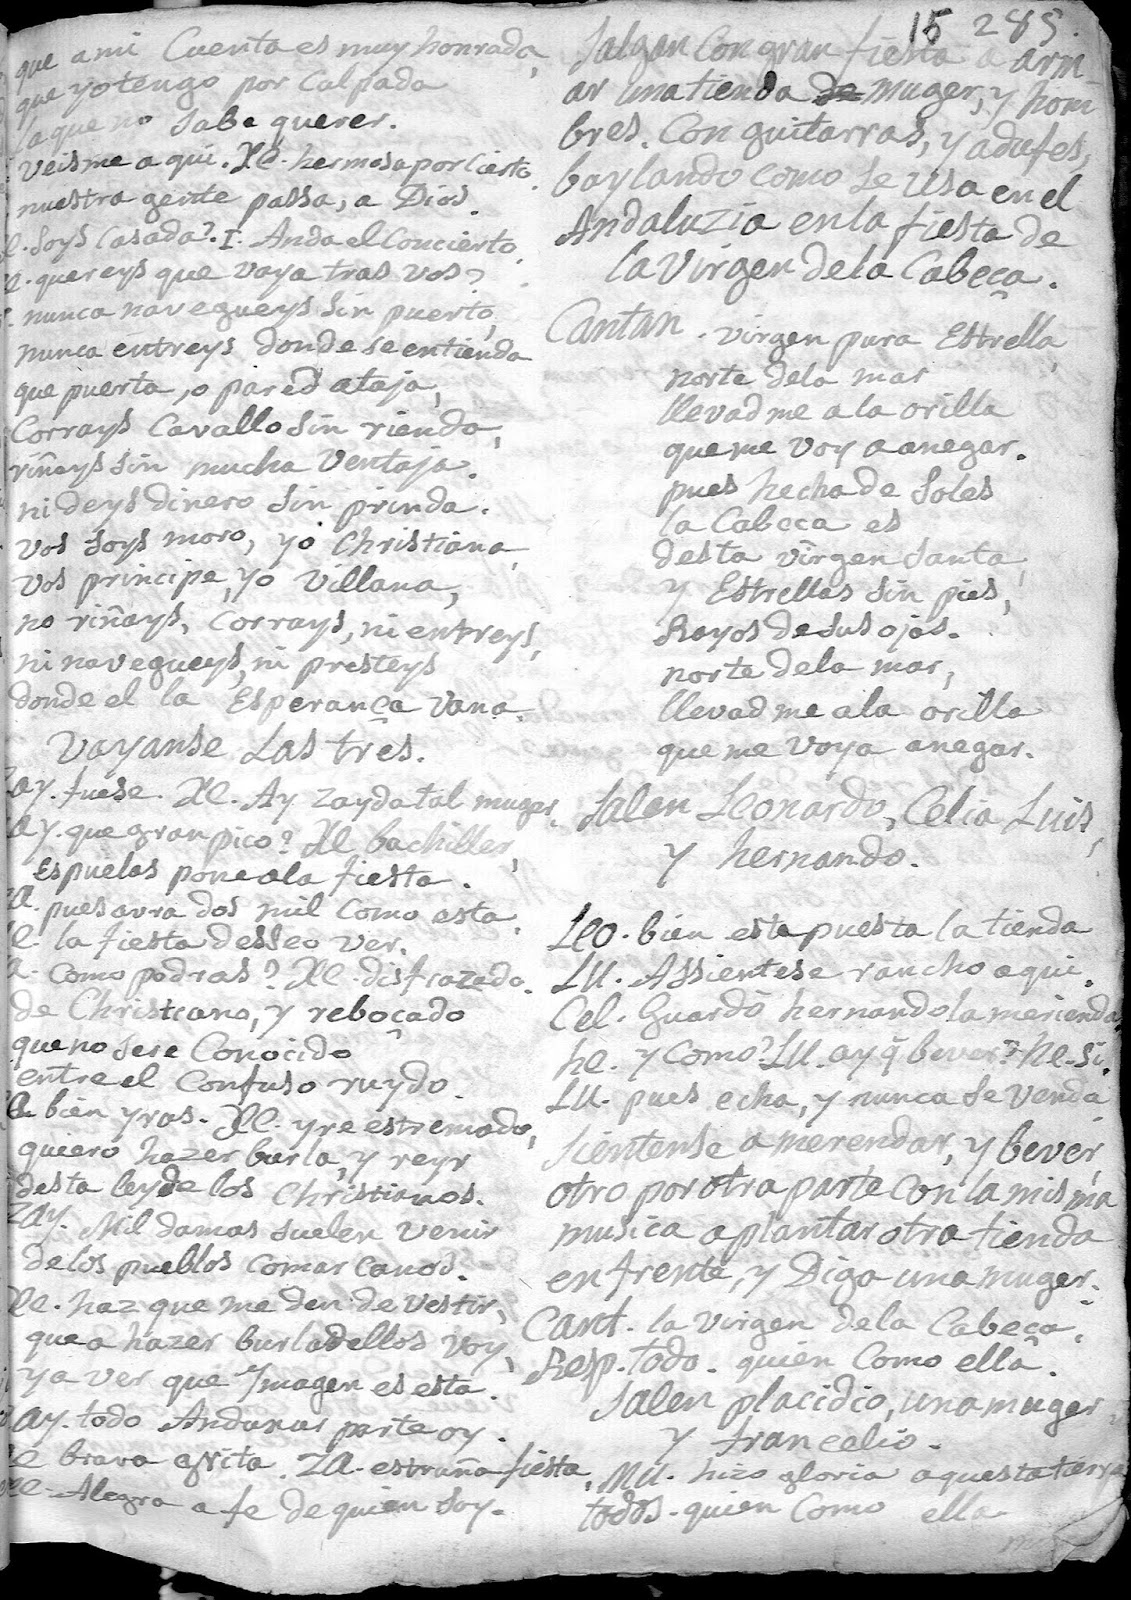 15 285.
que a mi Cuenta es muy honrada,
que yo tengo por Culpada
la que no sabe querer.
veisme aqui. Xe. hermosa por cierto.
nuestra gente passa, a Dios.
Xe. soys Casada? I. Anda el Concierto.
Xe. quereys que vaya tras vos?
nunca navegueys sin puerto,
nunca entreys donde se entienda
que puerta, o pared ataja,
Corrays Cavallo sin rienda,
riñays sin mucha ventaja.
ni deys dinero sin prinda.
vos soys moro, yo Christiana,
vos principe, yo villana,
no riñays, Corrays, ni entreys,
ni navegueys, ni presteys
donde el la Esperança vana.
Vayanse Las tres.
Zay. fuese. Xe. Ay Zayda tal muger.
Zay. que gran pico? Xe bachiller,
Espuelas pone a la fiesta.
Za. pues avra dos mil como esta.
Xe. la fiesta desseo ver.
Za. Como podras? Xe. disfrazado.
de Christiano, y reboçado
que no sere Conocido
entre el Confuso ruydo.
Za bien yras. Xe. yre estremado,
quiero hazer burla, y reyr
desta ley de los Christianos.
Zay. Mil damas suelen venir
de los pueblos Comarcanos.
Xe. haz que me den de vestir,
que a hazer burla dellos voy,
y a ver que Imagen es esta.
Zay. todo Anduxar parte oy.
Xe brava grita. Za. estraña fiesta.
Xe. Alegra a fe de quien soy.
Salgan Con gran fiesta a arm
ar una tienda de muger, y hom
bres. Con guitarras, y adufes,
baylando como se usa en el
Andaluzia en la fiesta de
la Virgen de la Cabeça.
Cantan. virgen pura Estrella,
norte dela mar
llevad me a la orilla
que me voy a anegar.
pues hecha de Soles
la Cabeca es
desta virgen santa,
y Estrellas sin pies,
Rayos de sus ojos.
norte dela mar,
llevad me ala orilla
que me voy a anegar.
Salen Leonardo, Celia Luis,
y hernando.
Leo. bien esta puesta la tienda
Lu. Assientese rancho aqui.
Cel. Guardó hernando la merienda.
he. y Como? Lu. ay q̃ bever? he. si.
Lu. pues echa, y nunca se venda
Sientense a merendar, y bever,
otro por otra parte Con la misma
musica a plantar otra tienda
enfrente, y Diga una muger.
Cant. la virgen dela Cabeça.
Resp. todo. quien Como ella.
Salen placidio, una muger
y francelio.
Mu. hizo gloria aquesta tierra
todos. quien Como ella.